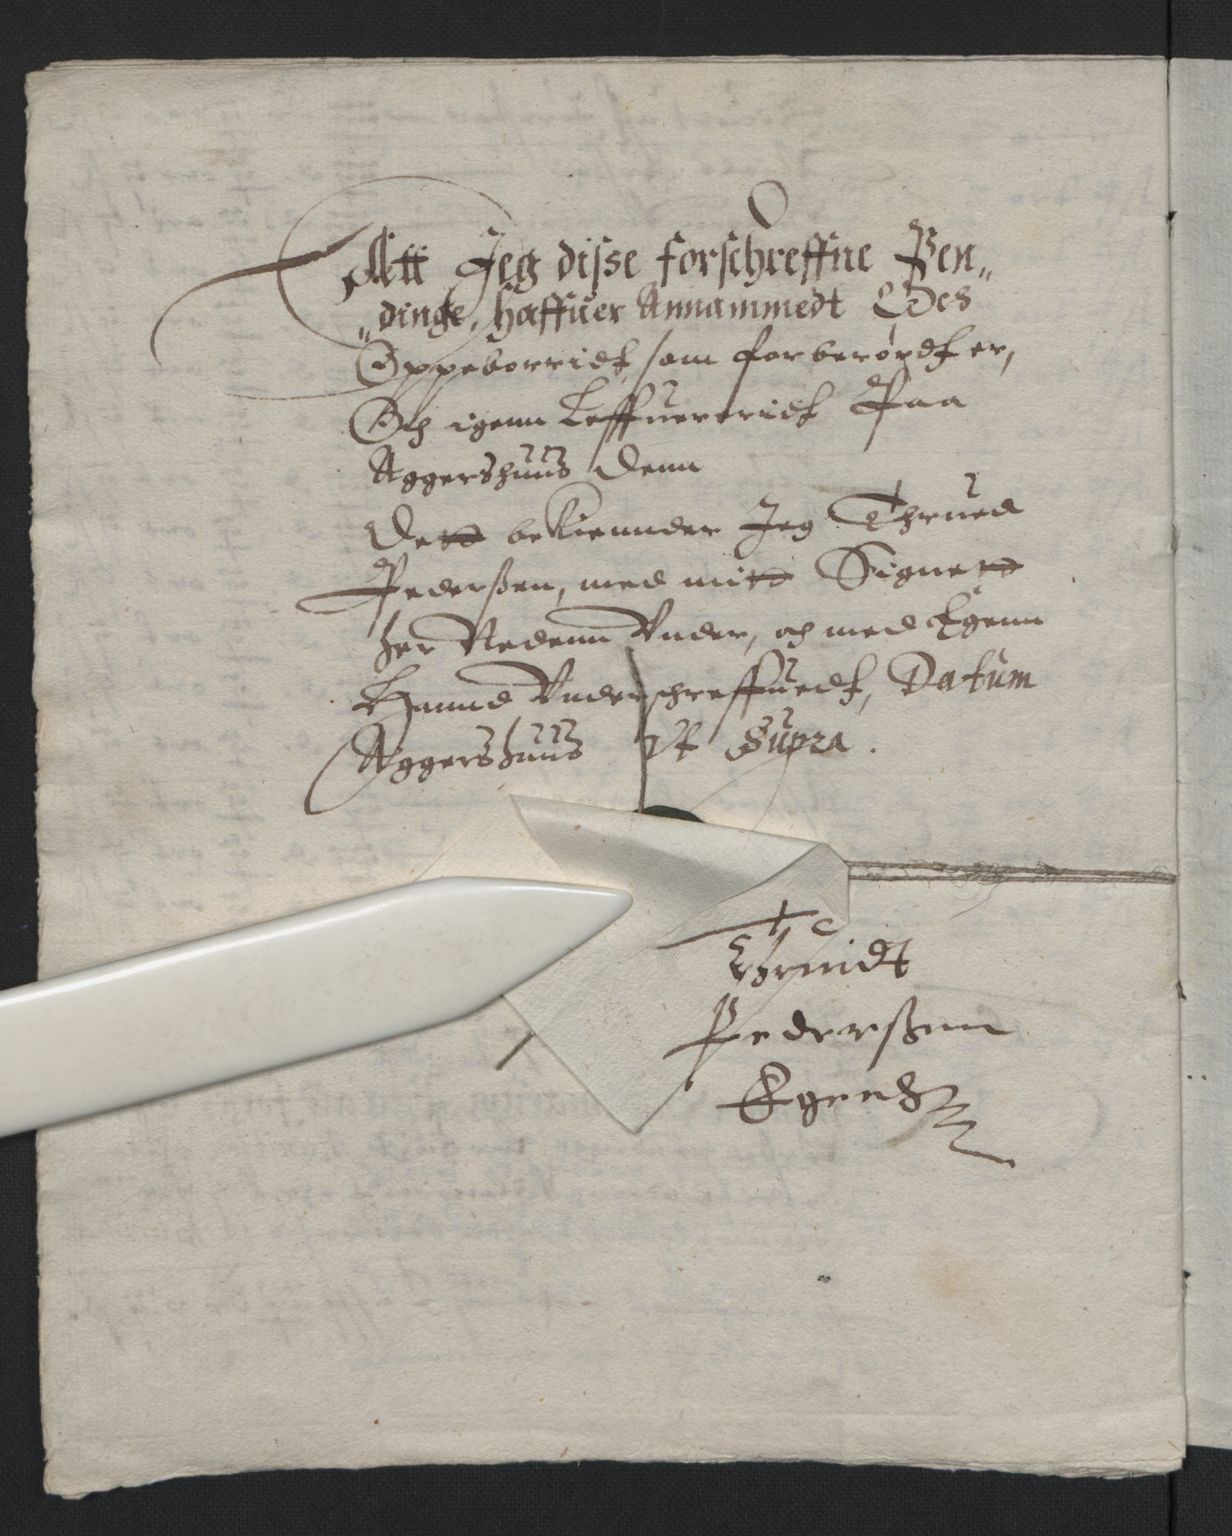 Att Jeg disse forschreffne Pen„
„dinge, haffuer Annammedt Oc
Oppeborridt, som forberørdt er,
Och igenn Leffuerеridt Paa
Aggershuus Denn
Dett bekiennder Jeg Thrued
Pederßen, med mitt Signett
her Nedenn Vnder, och med Egenn
Haand Vnderschreffuedt, Datum
Aggershuus Vt Supra.
Thruidt
Pederßenn
Egen h